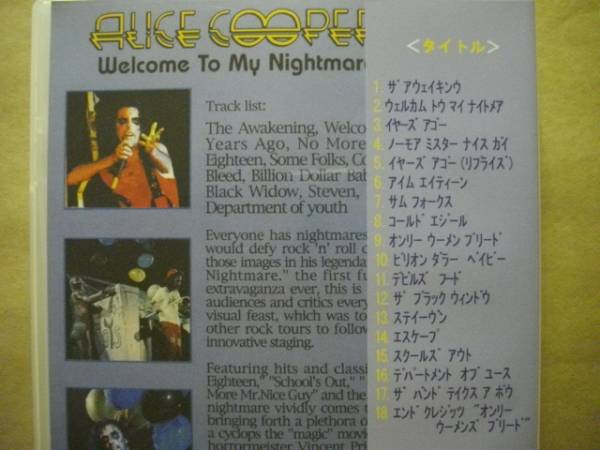 ALICE COOPER
Welcome To My Nightmare
Track list:
The Awakening, Welco
Years Ago, No More
Eighteen, Some Folks, Co
Bleed, Billion Dollar Bab
Black Widow, Steven,
Department of youth
Everyone has nightmares
would defy rock 'n' roll c
those images in his legenda
Nightmare." the first fu
extravaganza ever, this is
audiences and critics every
visual feast, which was to
other rock tours to follow
innovative staging.
Featuring hits and classi
Eighteen," "School's Out," "
More Mr.Nice Guy" and the
nightmare vividly comes t
bringing forth a plethora o
a cyclops the "magic" movi
horrormeister Vincent Pri
＜タイトル＞
1. ｻﾞ ｱｳｪｲｷﾝｳ
2. ｳｪﾙｶﾑ ﾄｩ ﾏｲ ﾅｲﾄﾒｱ
3. ｲﾔｰｽﾞ ｱｺﾞｰ
4. ﾉｰﾓｱ ﾐｽﾀｰ ﾅｲｽ ｶﾞｲ
5. ｲﾔｰｽﾞ ｱｺﾞｰ (ﾘﾌﾟﾗｲｽﾞ)
6. ｱｲﾑ ｴｲﾃｨｰﾝ
7. ｻﾑ ﾌｫｰｸｽ
8. ｺｰﾙﾄﾞ ｴｼﾞｰﾙ
9. ｵﾝﾘｰ ｳｰﾒﾝ ﾌﾞﾘｰﾄﾞ
10. ﾋﾞﾘｵﾝ ﾀﾞﾗｰ ﾍﾞｲﾋﾞｰ
11. ﾃﾞﾋﾞﾙｽﾞ ﾌｰﾄﾞ
12. ｻﾞ ﾌﾞﾗｯｸ ｳｨﾝﾄﾞｳ
13. ｽﾃｲｰｳﾞﾝ
14. ｴｽｹｰﾌﾟ
15. ｽｸｰﾙｽﾞ ｱｳﾄ
16. ﾃﾞﾊﾟｰﾄﾒﾝﾄ ｵﾌﾞ ﾕｰｽ
17. ｻﾞ ﾊﾝﾄﾞ ﾃｲｸｽ ｱ ﾎﾞｳ
18. ｴﾝﾄﾞ ｸﾚｼﾞｯﾂ "ｵﾝﾘｰ
ｳｰﾒﾝｽﾞ ﾌﾞﾘｰﾄﾞ"